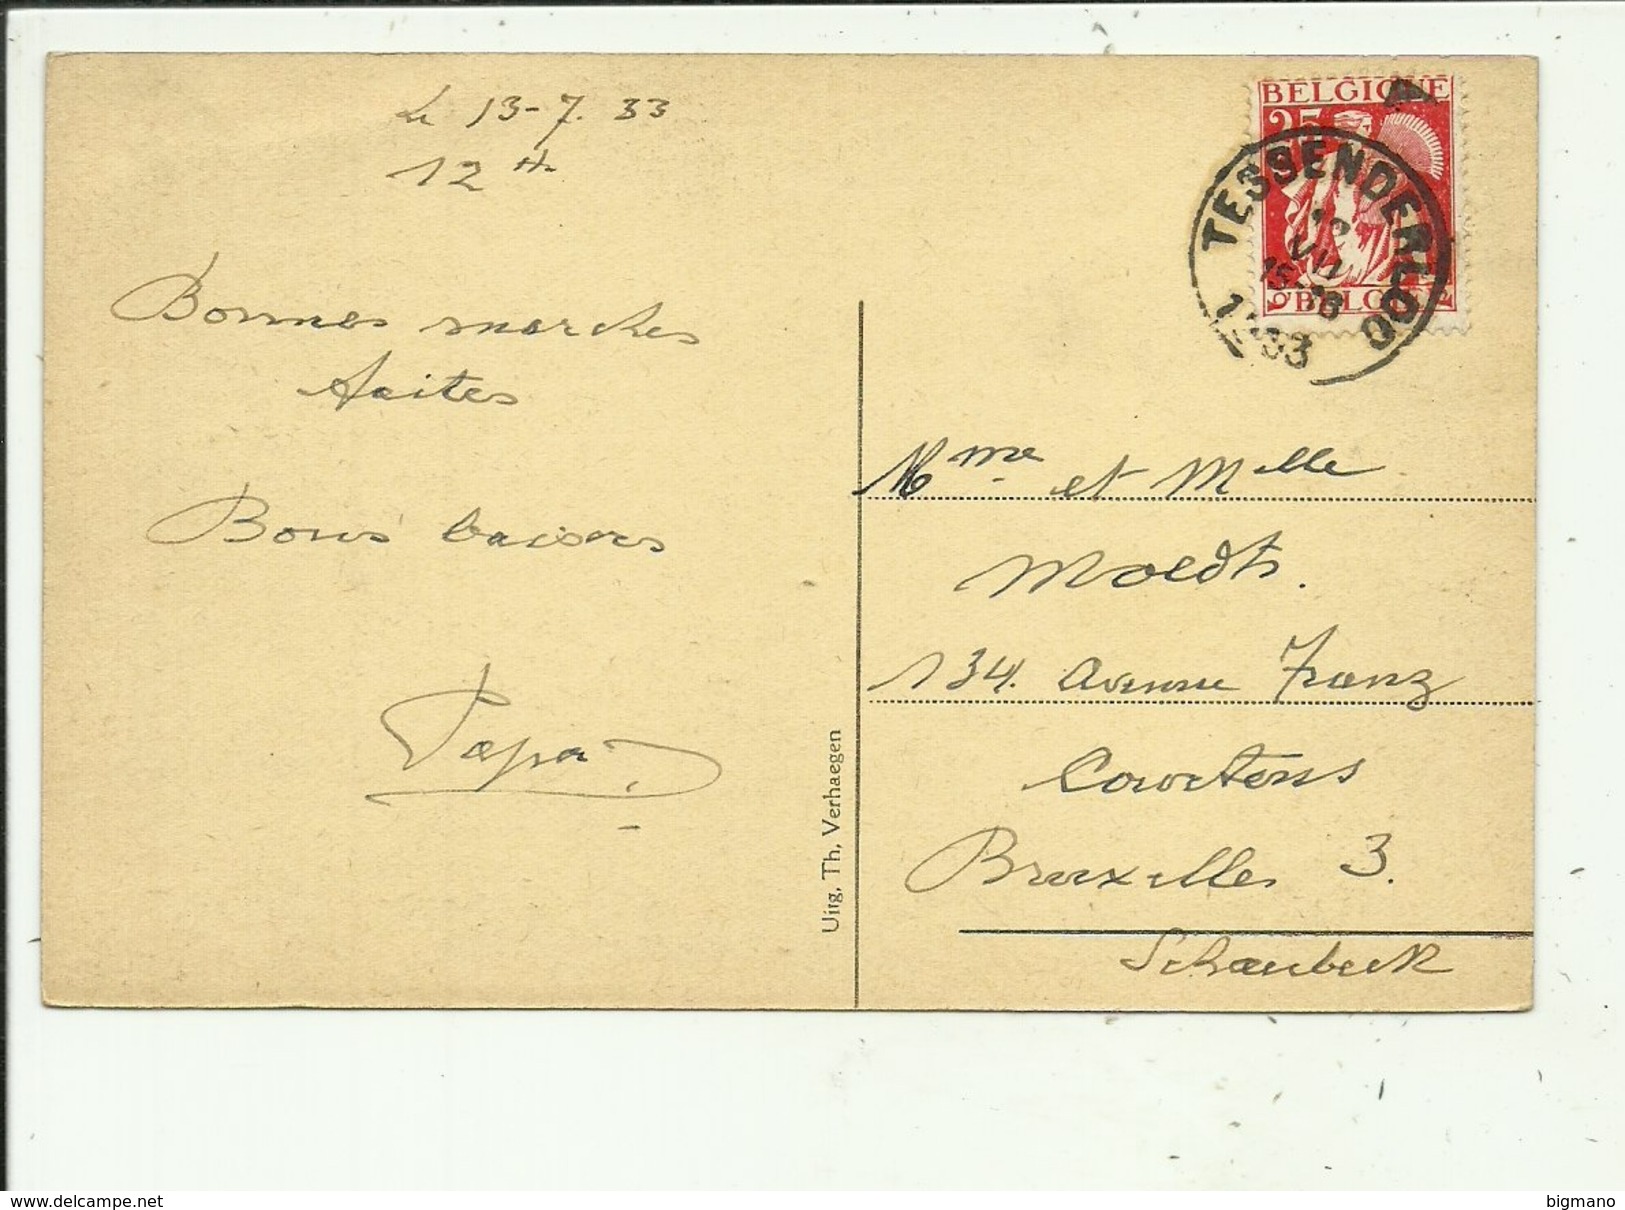 Le 13-7. 33
12 H
Bonnes marches
faites
Bons baisers
Papa
Uitg. Th. Verhaegen
BELGIQUE
25
BELGIE
TESSENDERLOO
VII
1933
Mme et Mlle
Moldts.
134. Avenue Franz
Courtens
Bruxelles 3.
Schaerbeek
www.delcampe.net
bigmano